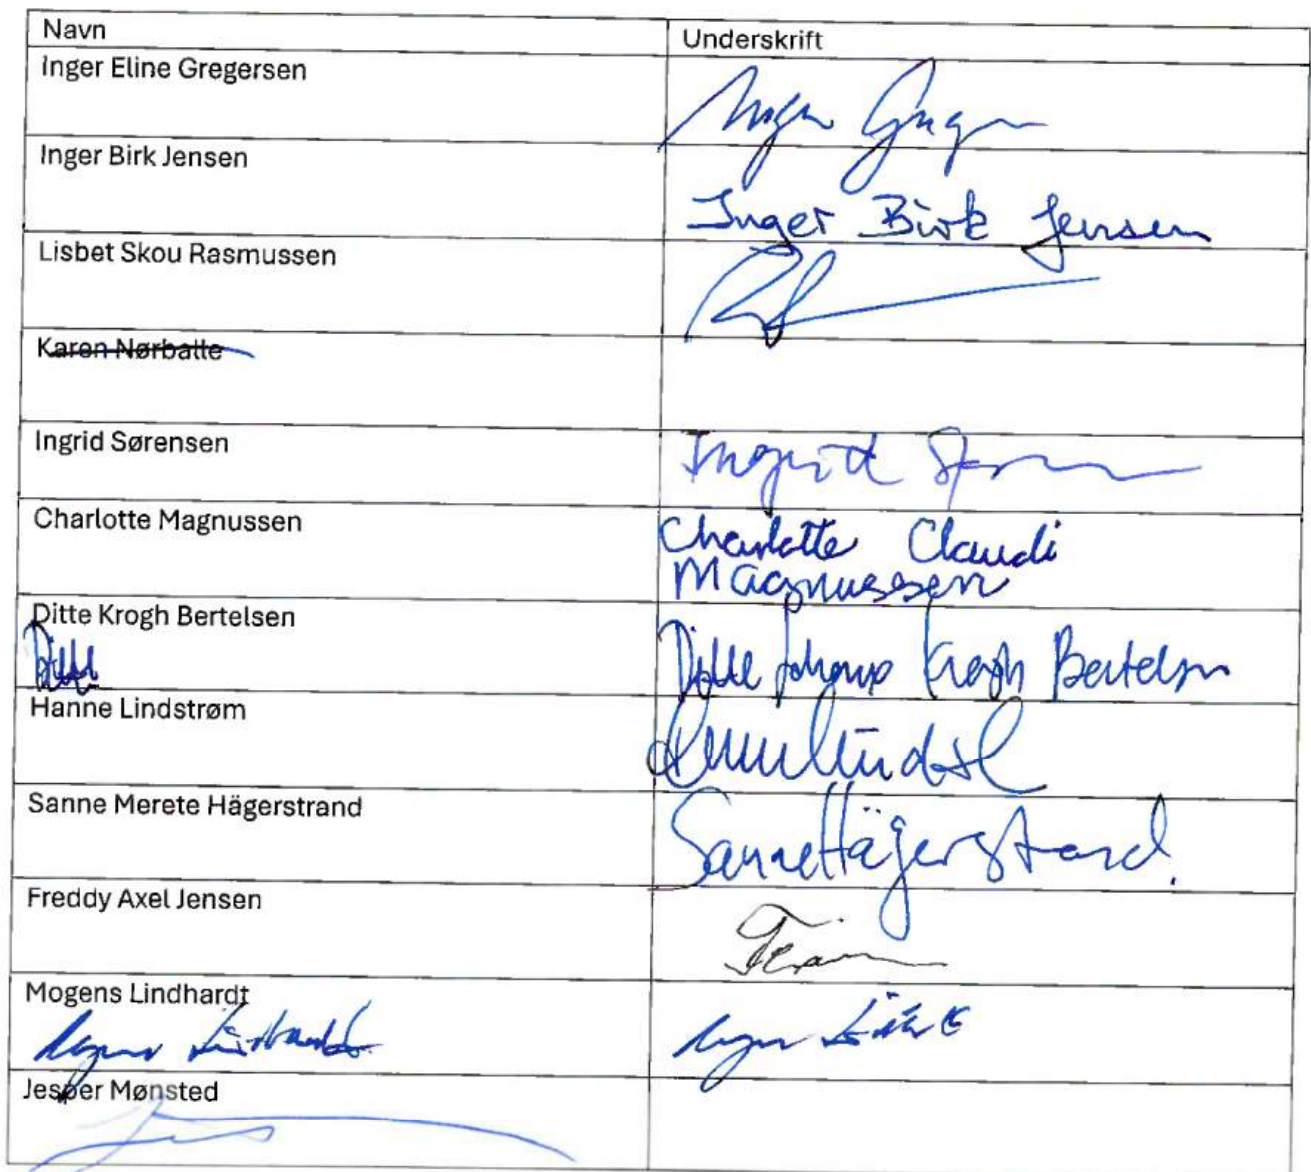 Navn
Underskrift
Inger Eline Gregersen
Inger Birk Jensen
Inger Birk Jensen
Lisbet Skou Rasmussen
Karen Nørbatte
Ingrid Sørensen
Ingrid
Charlotte Magnussen
Charlotte Claudi
Magnussen
Ditte Krogh Bertelsen
Ditte
Ditte Krogh Bertelsen
Hanne Lindstrøm
Sanne Merete Hägerstrand
Sanne Hägerstrand.
Freddy Axel Jensen
Mogens Lindhardt
Jesper Mønsted